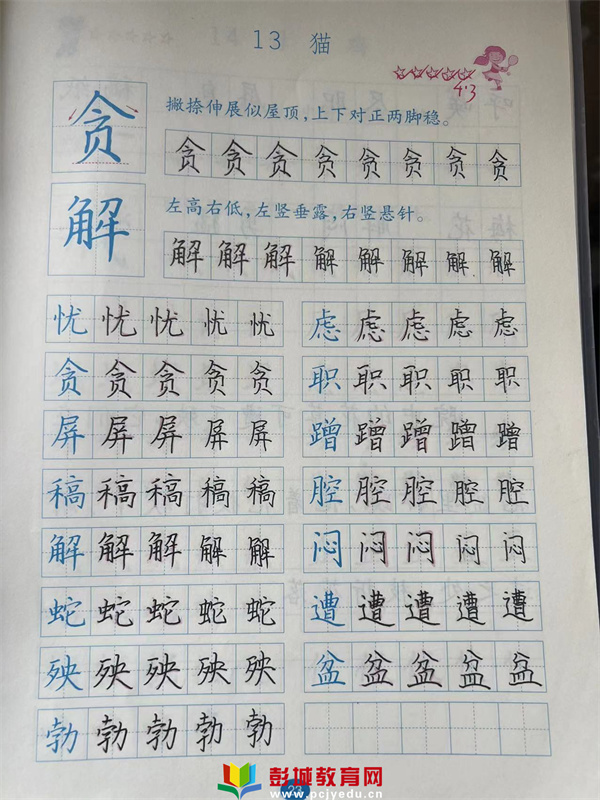 13 猫
4.3
贪 撇捺伸展似屋顶，上下对正两脚稳。
贪贪贪贪贪贪贪贪
解 左高右低，左竖垂露，右竖悬针。
解解解解解解解解
忧忧忧忧忧 虑虑虑虑虑
贪贪贪贪贪 职职职职职
屏屏屏屏屏 蹭蹭蹭蹭蹭
稿稿稿稿稿 腔腔腔腔腔
解解解解解 闷闷闷闷闷
蛇蛇蛇蛇蛇 遭遭遭遭遭
殃殃殃殃殃 盆盆盆盆盆
勃勃勃勃勃
23
彭城教育网
www.pcjyedu.cn